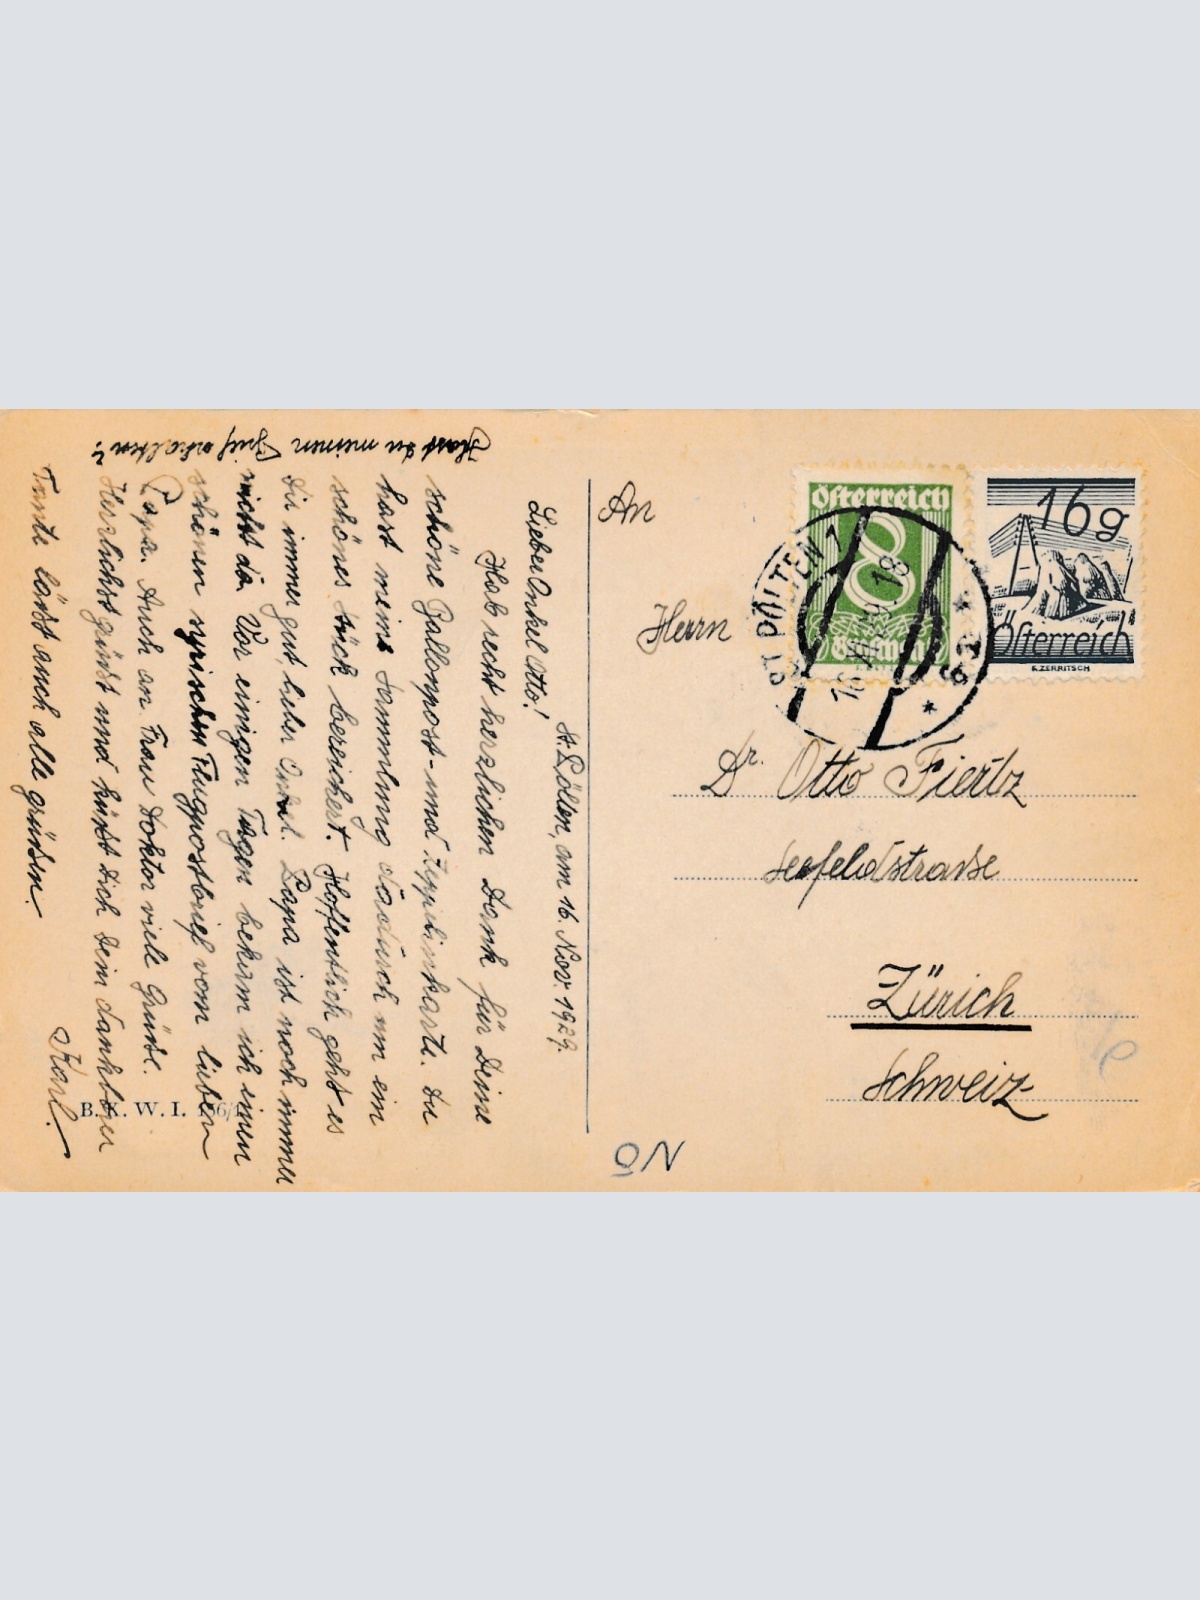 St. Pölten, am 16. Nov. 1929.
Lieber Onkel Otto!
Hab recht herzlichen Dank für Deine
schöne Ballonpost- und Zeppelinkarte. Du
hast meine Sammlung dadurch um ein
schönes Stück bereichert. Hoffentlich geht es
Dir immer gut, lieber Onkel. Papa ist noch immer
nicht da. Vor einigen Tagen bekam ich einen
schönen Flugpostbrief vom lieben
Papa. Auch an Frau Doktor viele Grüße.
Herzlichst grüßt und küßt Dich Dein dankbarer
Karl.
Tante läßt auch alle grüßen.
Hast Du meinen Brief erhalten?
B. K. W. I.
An
Herrn
Dr. Otto Fiertz
Seefeldstrasse
Zürich
Schweiz
NÖ
Österreich
8
Groschen
16g
Österreich
F. ZERRITSCH
ST PÖLTEN 1
16.XI.29.18
* 2 a *